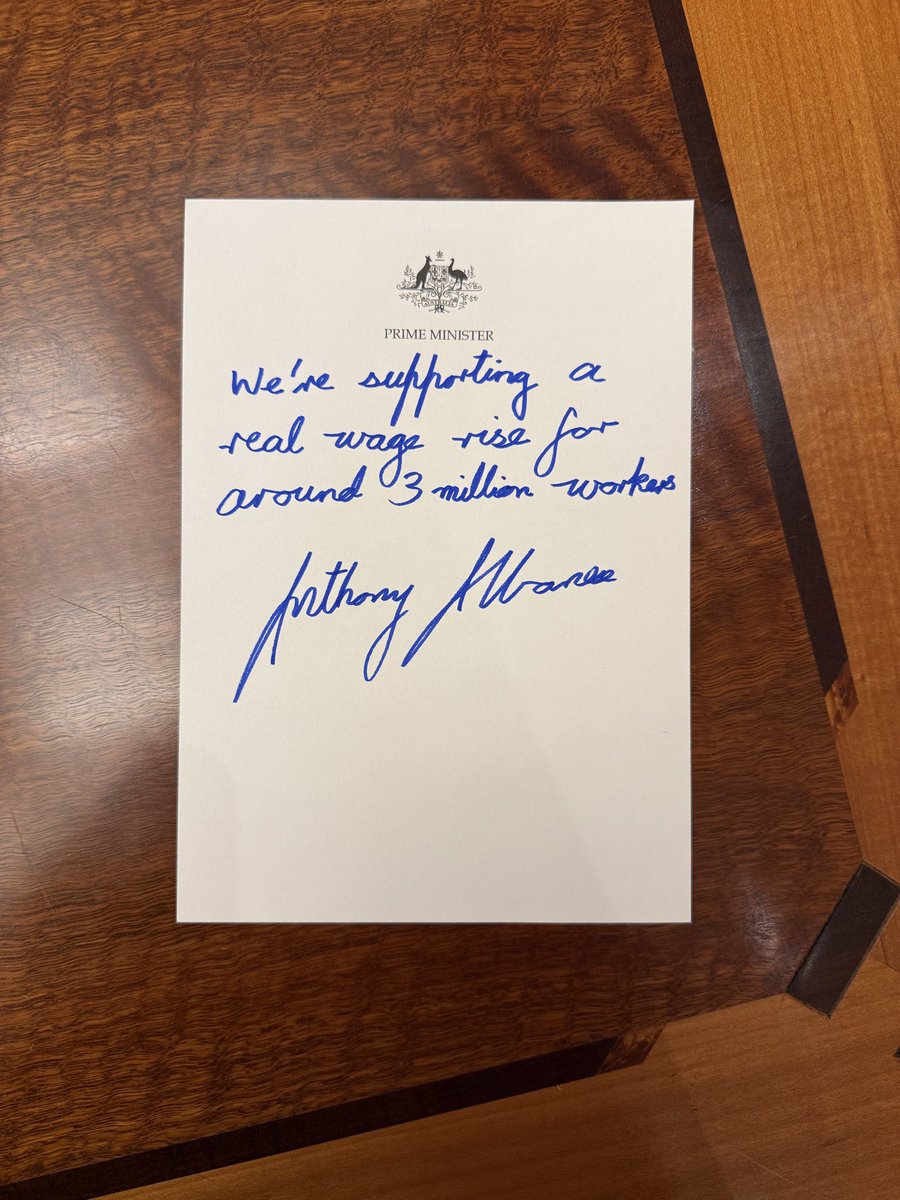 AUSTRALIA
PRIME MINISTER
We're supporting a
real wage rise for
around 3 million workers
Anthony Albanese